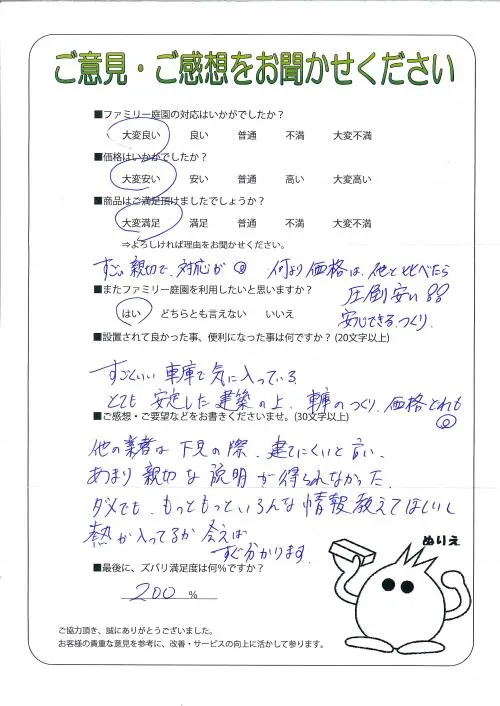 ご意見・ご感想をお聞かせください
■ファミリー庭園の対応はいかがでしたか？
大変良い 良い 普通 不満 大変不満
■価格はいかがでしたか？
大変安い 安い 普通 高い 大変高い
■商品はご満足頂けましたでしょうか？
大変満足 満足 普通 不満 大変不満
⇒よろしければ理由をお聞かせください。
すごい親切で、対応が◎ 何より価格は、他と比べたら
圧倒安い!!
安心できるつくり.
■またファミリー庭園を利用したいと思いますか？
はい どちらとも言えない いいえ
■設置されて良かった事、便利になった事は何ですか？(20文字以上)
すごくいい車庫で気に入っている.
とても安定した建築の上、車庫のつくり、価格どれも
◎
■ご感想・ご要望などをお書きくださいませ。(30文字以上)
他の業者は下見の際、建てにくいと言い、
あまり親切な説明が得られなかった.
ダメでも、もっともっといろんな情報教えてほしいし
熱が入ってるか会えば
すぐ分かります.
ぬりえ
■最後に、ズバリ満足度は何％ですか？
200 ％
ご協力頂き、誠にありがとうございました。
お客様の貴重な意見を参考に、改善・サービスの向上に活かして参ります。